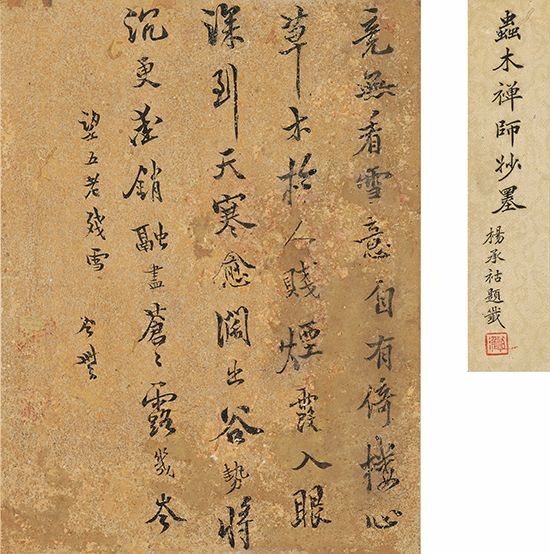 蟲木禪師妙墨
楊承祜題籤
竟無看雪意自有倚樓心
草木於人賤煙霞入眼
深到天寒愈闊出谷勢將
沉更銷融盡蒼〻露幾岑
望五老殘雪 今